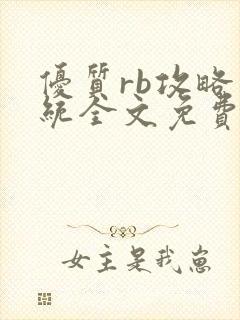 優質rb攻略
統全文免費
女主是我崽